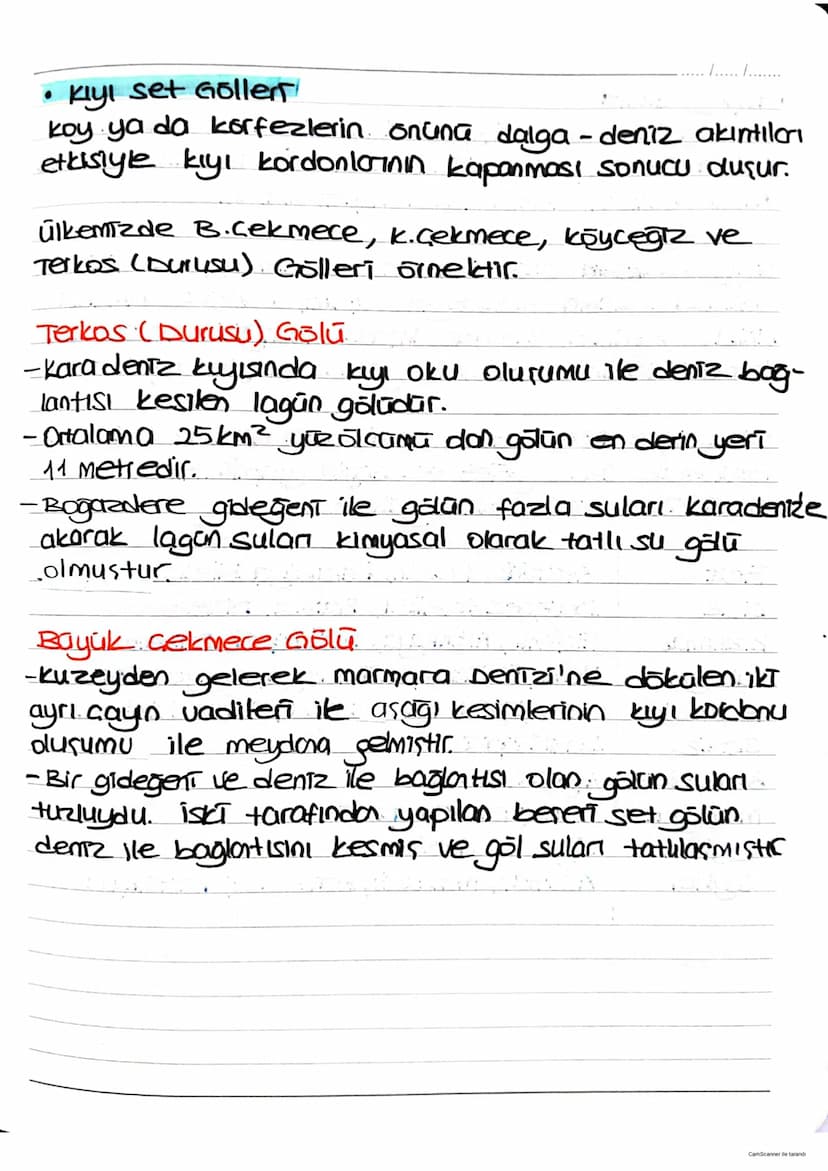 ..... /..... /.......
• Kıyı Set Gölleri
Koy ya da körfezlerin önünü dalga - deniz akıntıları
etkisiyle kıyı kordonlarının kapanması sonucu oluşur.
Ülkemizde B.Çekmece, K.Çekmece, Köyceğiz ve
Terkos (Durusu) Gölleri örnektir.
Terkos (Durusu) Gölü
-Karadeniz kıyısında kıyı oku oluşumu ile deniz bağ-
lantısı kesilen lagün gölüdür.
- Ortalama 25 km² yüz ölçümü olan gölün en derin yeri
11 metredir.
- Boğazdere gideğeni ile gölün fazla suları Karadenize
akarak lagün suları kimyasal olarak tatlı su gölü
olmuştur.
Büyük Çekmece Gölü
-Kuzeyden gelerek Marmara Denizi'ne dökülen iki
ayrı çayın vadileri ile aşağı kesimlerinin kıyı kordonu
oluşumu ile meydana gelmiştir.
- Bir gideğeni ve deniz ile bağlantısı olan gölün suları
tuzluydu. İSKİ tarafından yapılan beşeri set gölün
deniz ile bağlantısını kesmiş ve göl suları tatlılaşmıştır
CamScanner ile tarandı